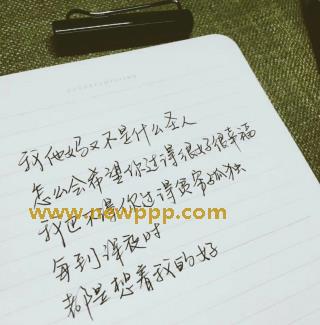 我他妈又不是什么圣人
怎么会希望你过得很好很幸福
www.newppp.com
我巴不得你过得贫穷孤独
每到深夜时
都是想着我的好